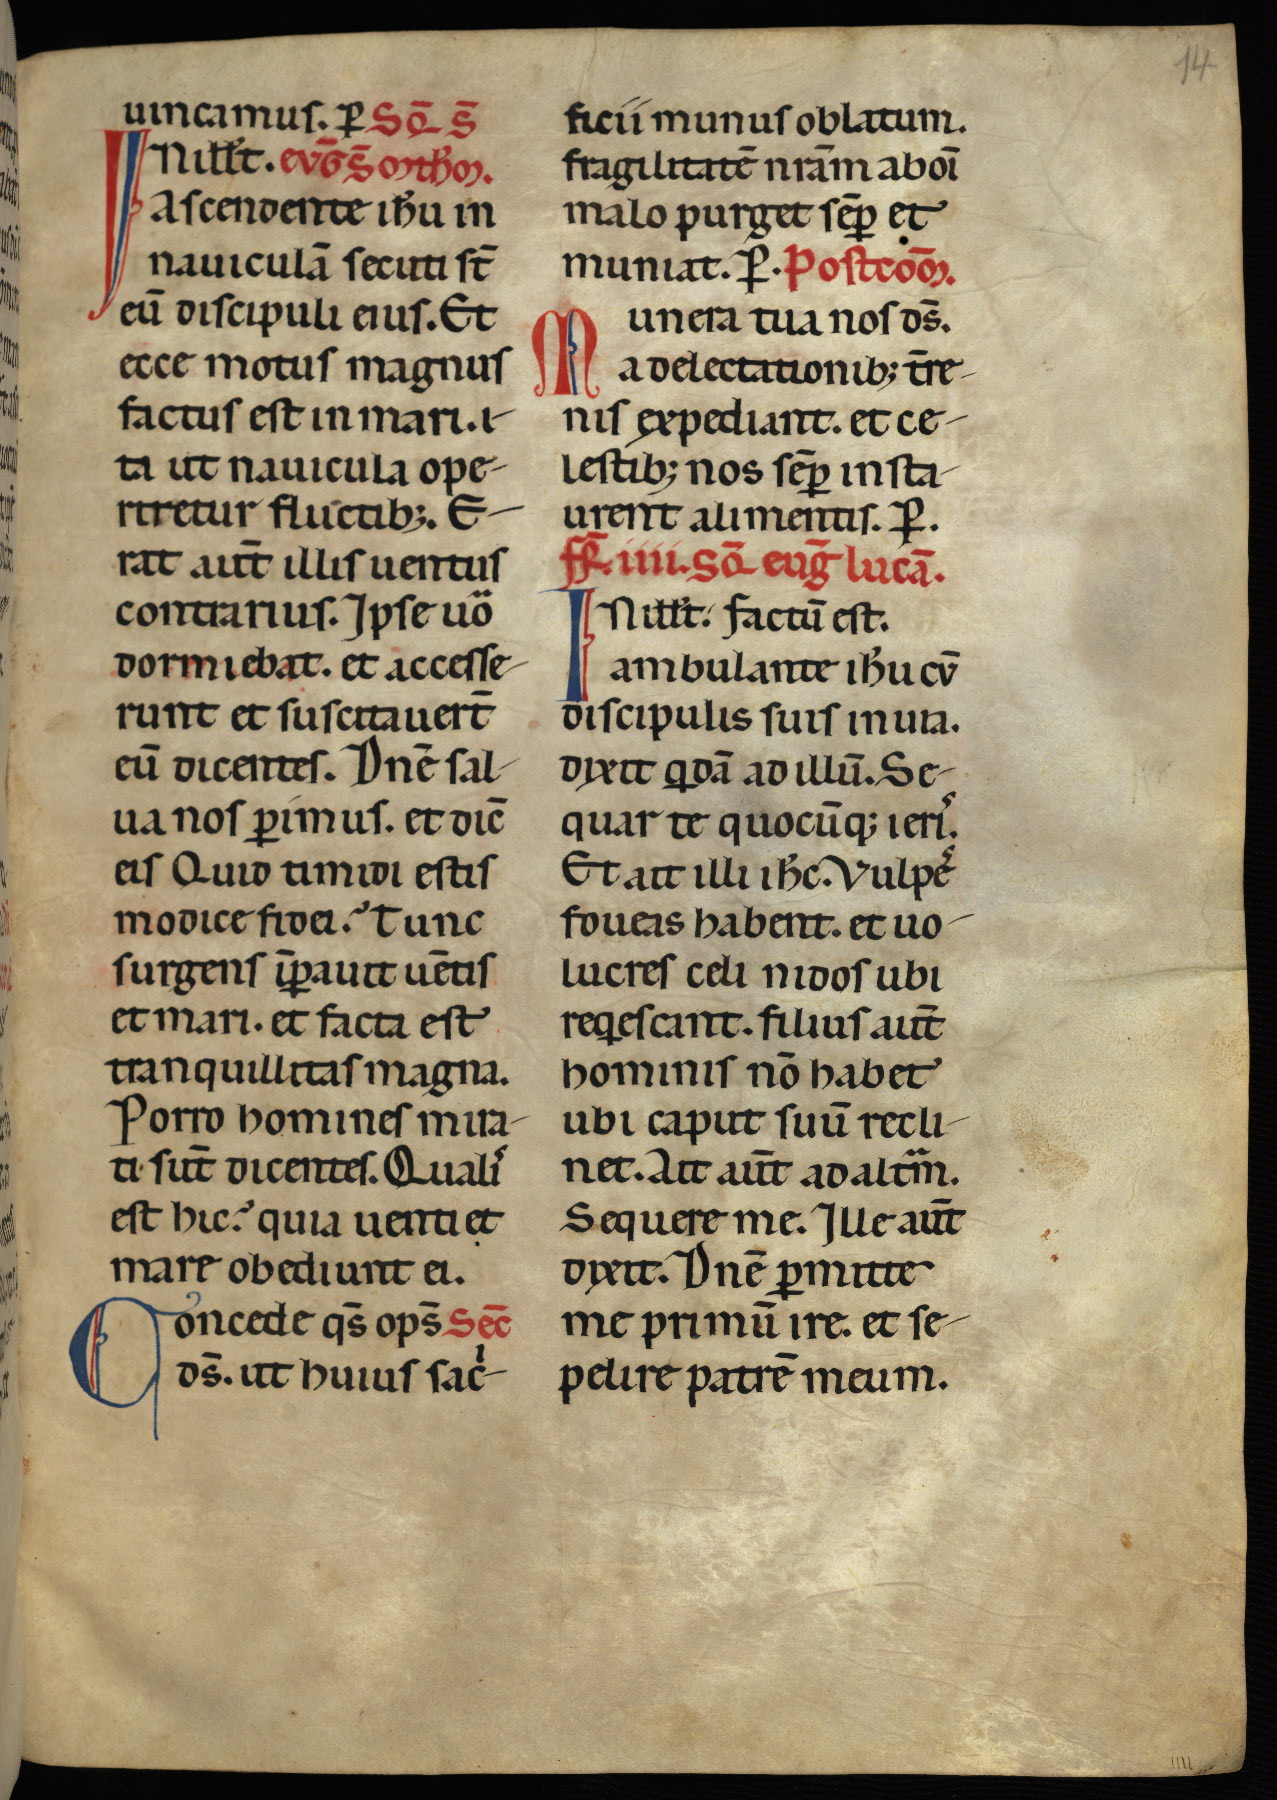 14
uincamus. P Sō s̄
INillt̄. euḡ s̄ matheum.
Ascendente ihu in
nauiculā secuti st̄
eū discipuli eius. Et
ecce motus magnus
factus est in mari. i-
ta ut nauicula ope-
riretur fluctib;. E-
rat aut̄ illis uentus
contrarius. Ipse uo
dormiebat. et accesse-
runt et suscitauert̄
eū dicentes. Dnē sal-
ua nos ꝑimus. et dic̄
eis Quid timidi estis
modice fidei. Tunc
surgens īꝑauit uētis
et mari. et facta est
tranquillitas magna.
Porro homines mira-
ti sūt dicentes. Qualis
est hic? quia uenti et
mare obediunt ei.
Concede qs̄ ops̄ Sec̄
ds̄. ut huius sacⁱ-
ficii munus oblatum.
fragilitatē nrām ab oī
malo purget sēꝑ et
muniat. P. Postcōm.
Munera tua nos ds̄.
a delectationib; t̄re-
nis expediant. et ce-
lestib; nos sēꝑ insta-
urent alimentis. P.
Fr̄. iiii. Sō euḡ lucā.
INillt̄. factū est.
ambulante ihu cū
discipulis suis in uia.
dixit qdā ad illū. Se-
quar te quocūq; ieris.
Et ait illi ihc. Vulpes
foueas habent. et uo-
lucres celi nidos ubi
reqescant. filius aut̄
hominis nō habet
ubi caput suū recli-
net. Ait aut̄ ad altm̄.
Sequere me. Ille aut̄
dixit. Dnē ꝑmitte
me primū ire. et se-
pelire patrē meum.